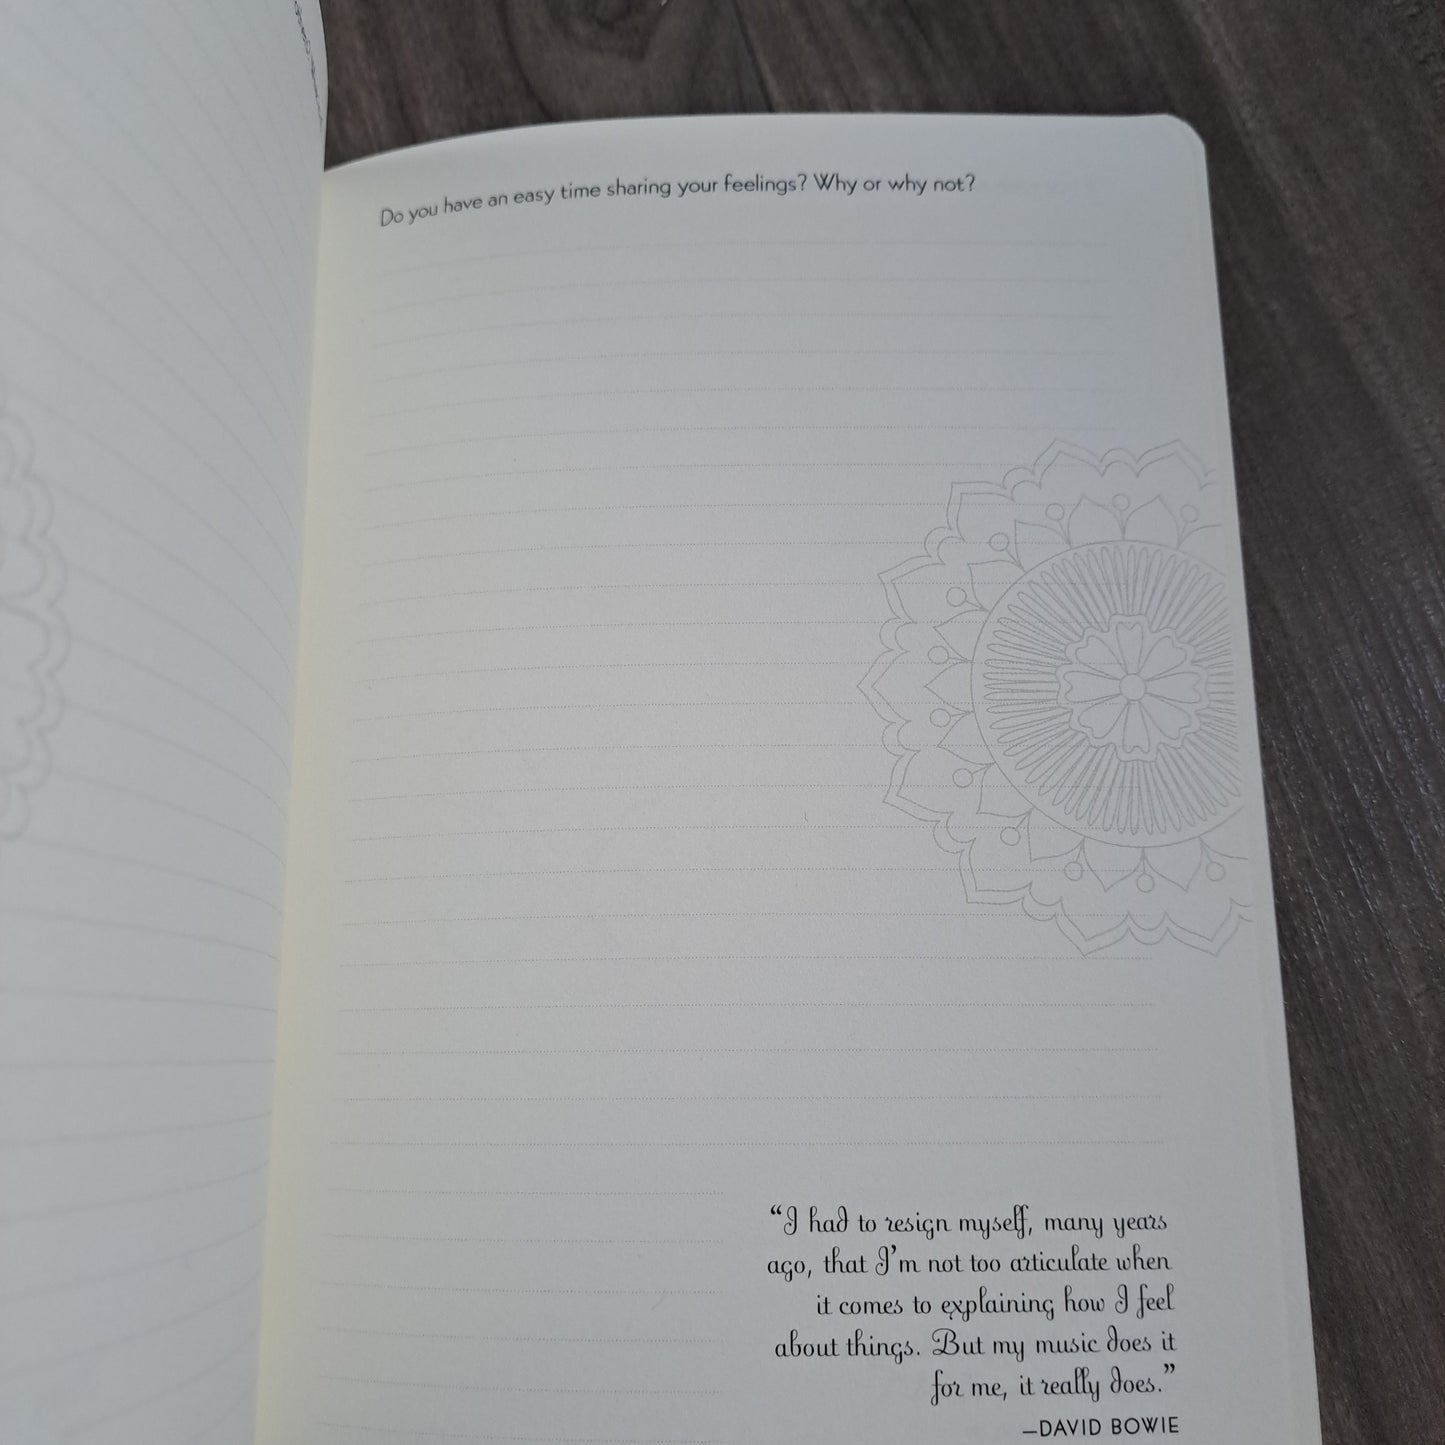 Do you have an easy time sharing your feelings? Why or why not?
“I had to resign myself, many years
ago, that I’m not too articulate when
it comes to explaining how I feel
about things. But my music does it
for me, it really does.”
—DAVID BOWIE